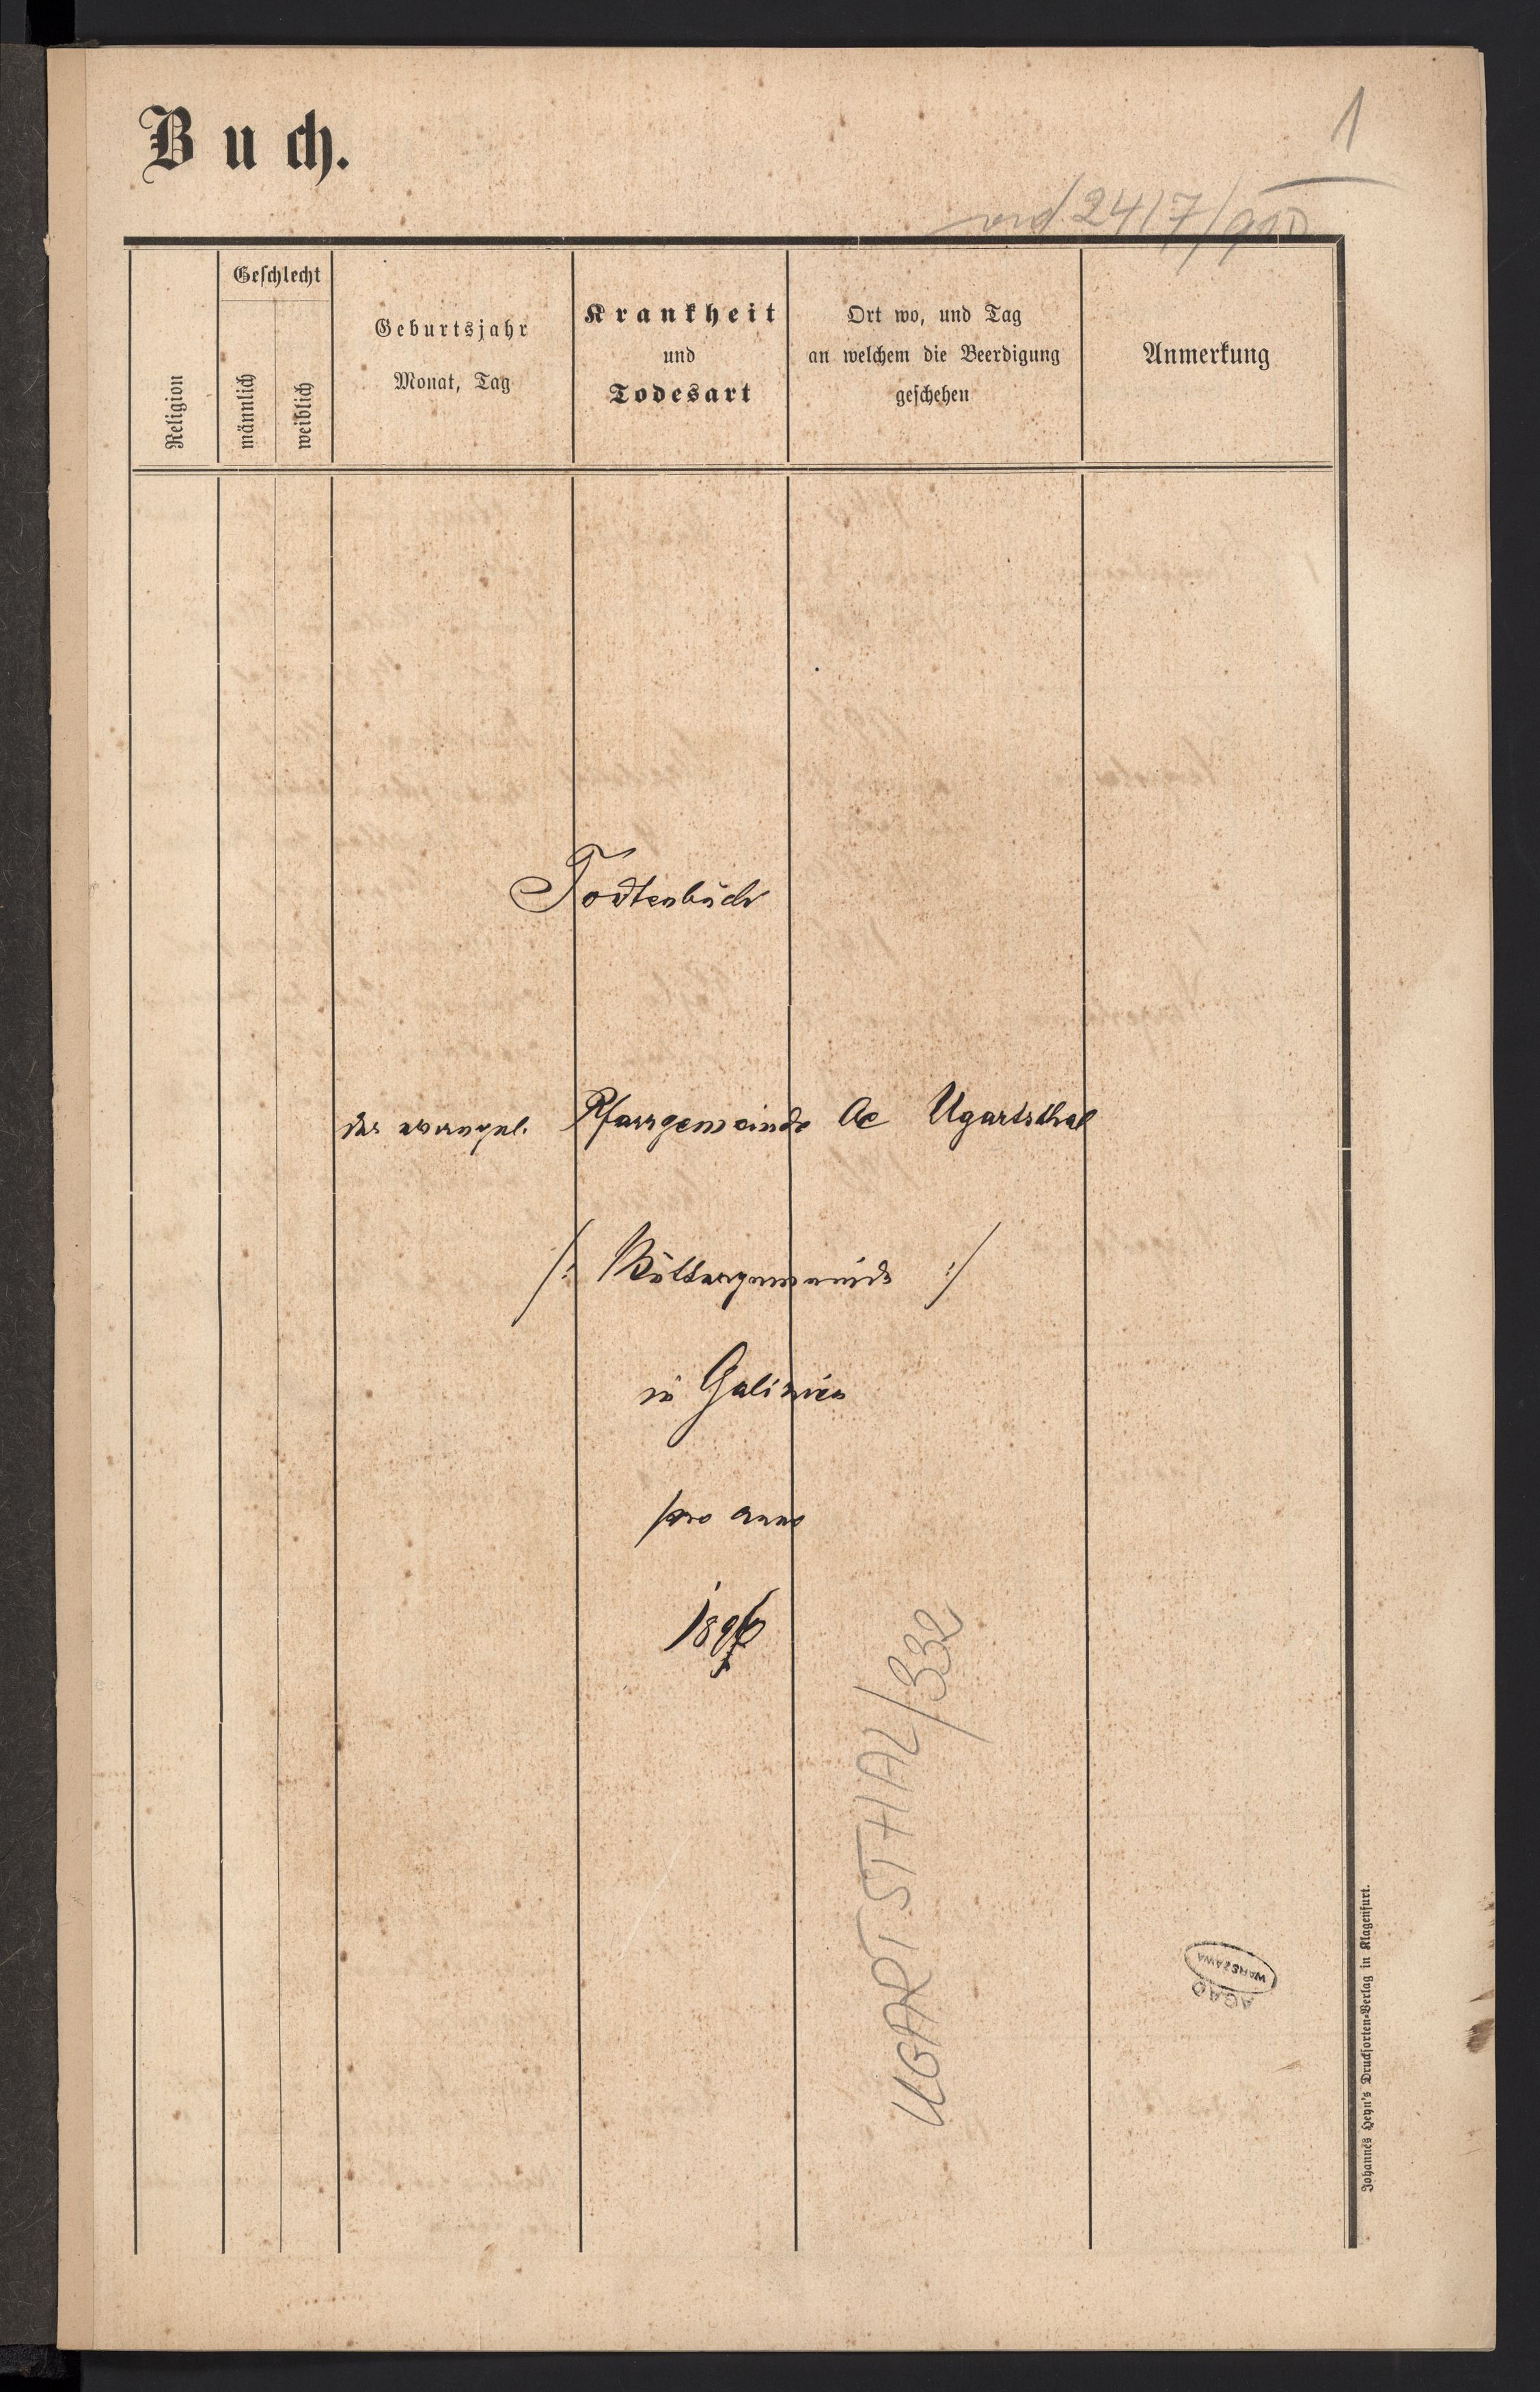 Buch.
1
2417/910
Religion
Geschlecht
männlich
weiblich
Geburtsjahr
Monat, Tag
Krankheit
und
Todesart
Ort wo, und Tag
an welchem die Beerdigung
geschehen
Anmerkung
Todtenbuch
der evangel. Pfarrgemeinde AC Ugartsthal
/: Muttergemeinde :/
in Galizien
pro anno
1896
UGARTSTHAL/332
AGAD
WARSZAWA
Johannes Heyn's Drucksorten-Verlag in Klagenfurt.